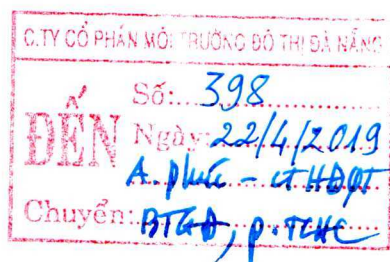 C.TY CỔ PHẦN MÔI TRƯỜNG ĐÔ THỊ ĐÀ NẴNG
ĐẾN
Số: 398
Ngày: 22/4/2019
A. Phúc - CT HĐQT
Chuyển: BTGĐ, P. TCHC